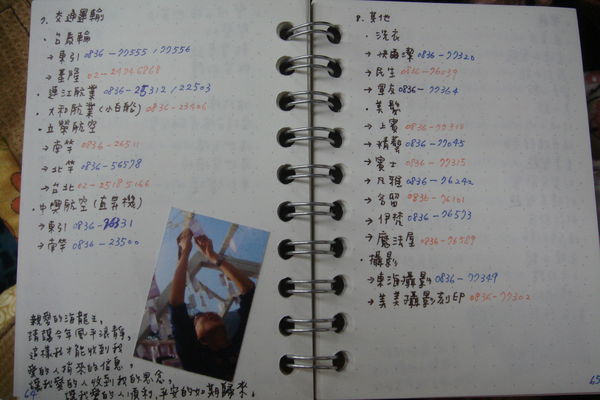 7. 交通運輸
·台馬輪
→東引 0836-77555, 77556
→基隆 02-24246868
·連江航業 0836-25312, 22503
·大和航業(小白船) 0836-23406
·立榮航空
→南竿 0836-26511
→北竿 0836-56578
→台北 02-25185166
中興航空(直昇機)
→東引
→南竿 0836-23500
親愛的海龍王,
請讓今年風平浪靜,
這樣我才能收到我
愛的人捎來的信息,
讓我愛的人收到我的思念,
讓我愛的人順利、平安的如期歸來。
64
8. 其他
·洗衣
→快爾潔 0836-77320
→民生 0836-76039
→軍友 0836-77364
·美髮
→上賓
→精藝 0836-77045
→賓士 0836-77315
→凡雅 0836-76242
→名留 0836-76101
→伊梵 0836-76573
→魔法屋 0836-76589
·攝影
→東海攝影 0836-77349
→美美攝影刻印 0836-77302
65